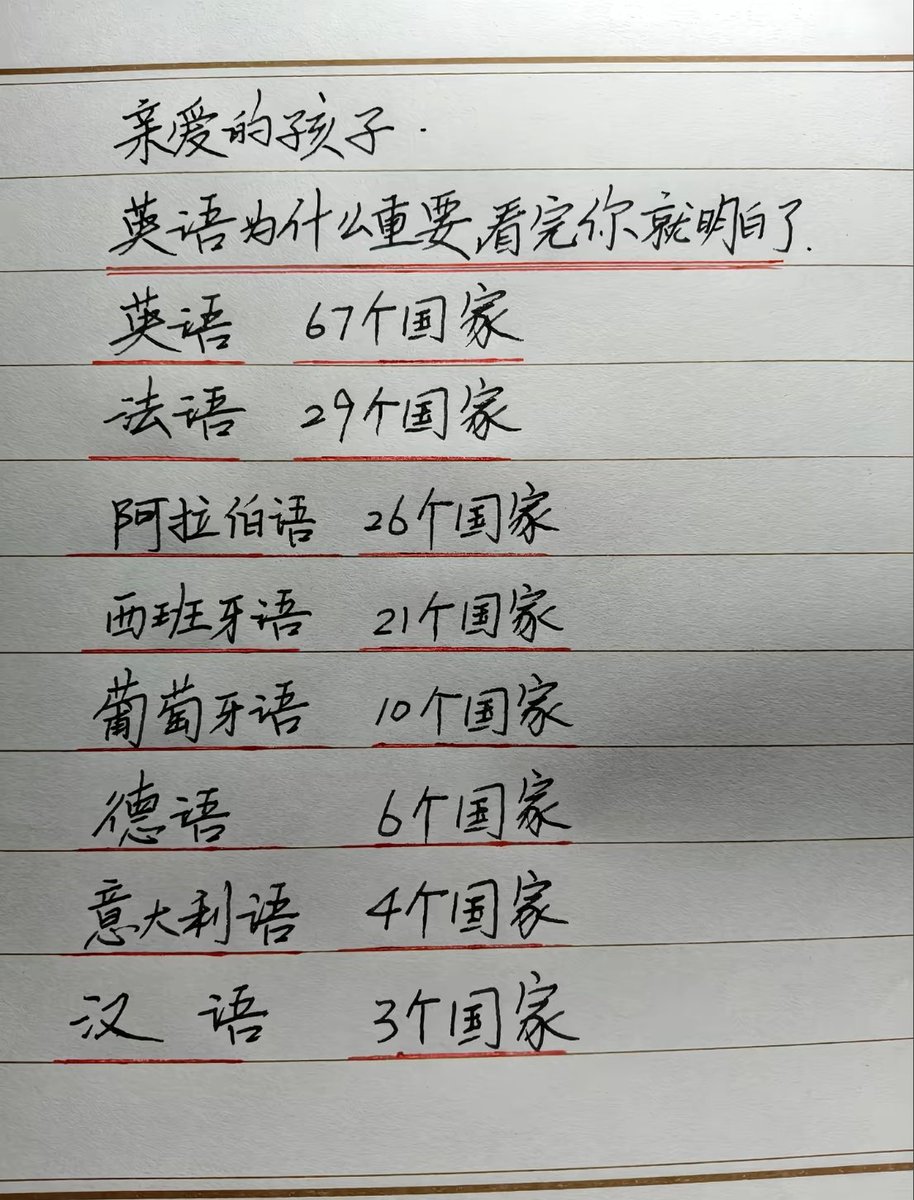 亲爱的孩子.
英语为什么重要,看完你就明白了.
英语 67个国家
法语 29个国家
阿拉伯语 26个国家
西班牙语 21个国家
葡萄牙语 10个国家
德语 6个国家
意大利语 4个国家
汉语 3个国家